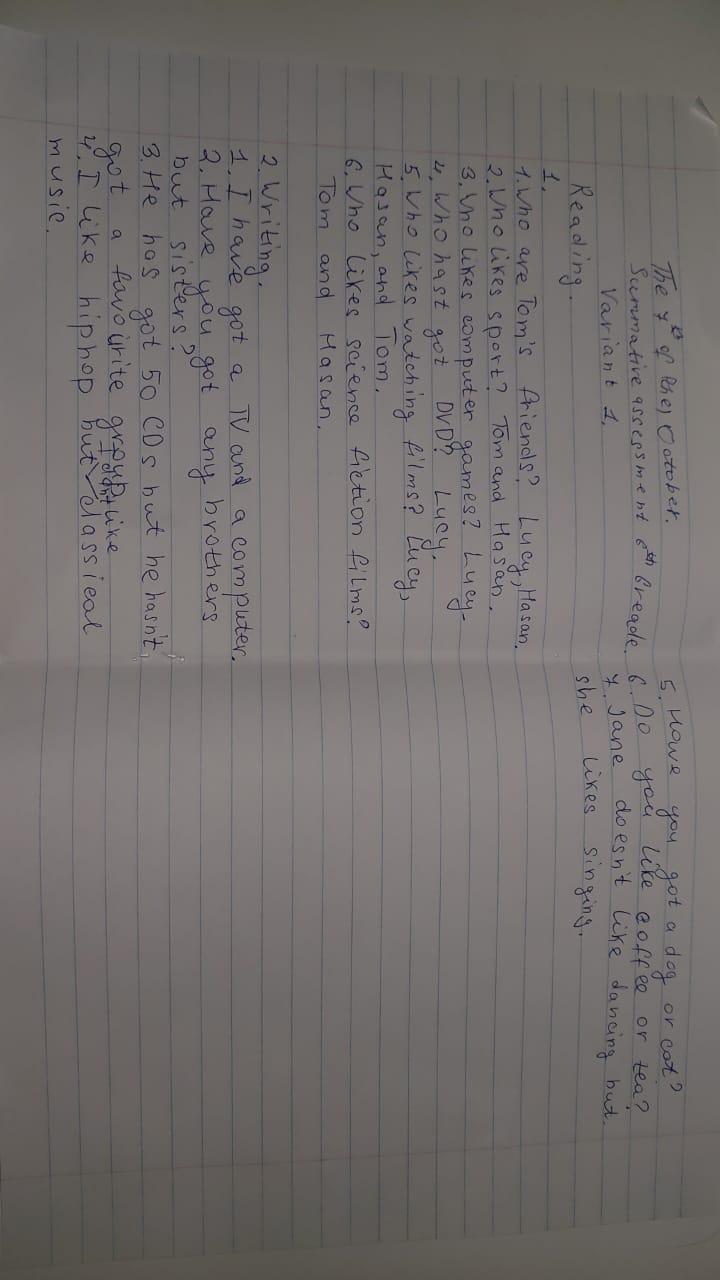 The 7th of the, October.
Summative assessment 6th Greade.
Variant 1.
Reading.
1.
1. Who are Tom's friends? Lucy, Hasan.
2. Who likes sport? Tom and Hasan.
3. Who likes computer games? Lucy.
4. Who hast got DVD? Lucy.
5. Who likes watching films? Lucy,
Hasan, and Tom.
6. Who likes science fiction films?
Tom and Hasan.
2. Writing.
1. I have got a TV and a computer.
2. Have you got any brothers
but sisters?
3. He has got 50 CDs but he hasn't
got a favourite group.
I don't like
4. I like hiphop but classical
music.
5. Howe you got a dog or cat?
6. Do you like coffee or tea?
7. Jane doesn't like dancing but
she likes singing.